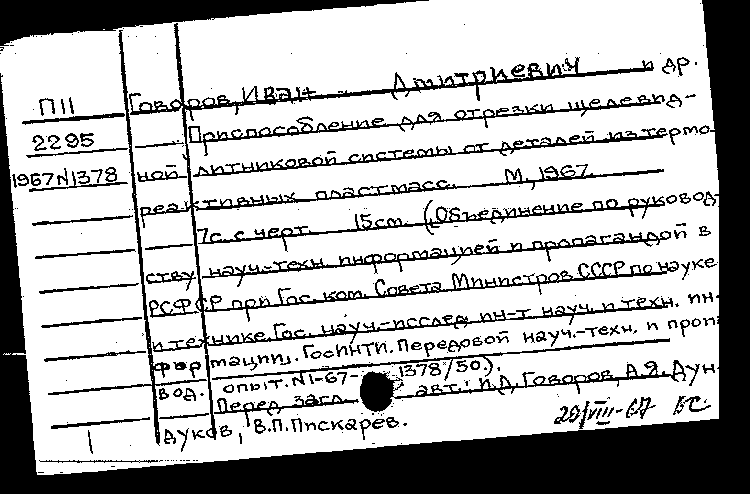 П11 Говоров, Иван Дмитриевич и др.
2295 Приспособление для отрезки щелевид-
1967N1378 ной литниковой системы от деталей из термо
реактивных пластмасс. М, 1967.
7с. с черт. 15см. (Объединение по руковод-
ству науч.-техн. информацией и пропагандой в
РСФСР при Гос. ком. Совета Министров СССР по науке
и технике. Гос. науч.-исслед. ин-т науч. и техн. ин-
формации. ГосИНТИ. Передовой науч.-техн. и произ
вод. опыт. N1-67- 1378/50).
Перед загл. авт.: И.Д. Говоров, А.Я. Дун-
дуков, В.П. Пискарев.
29/VIII-67